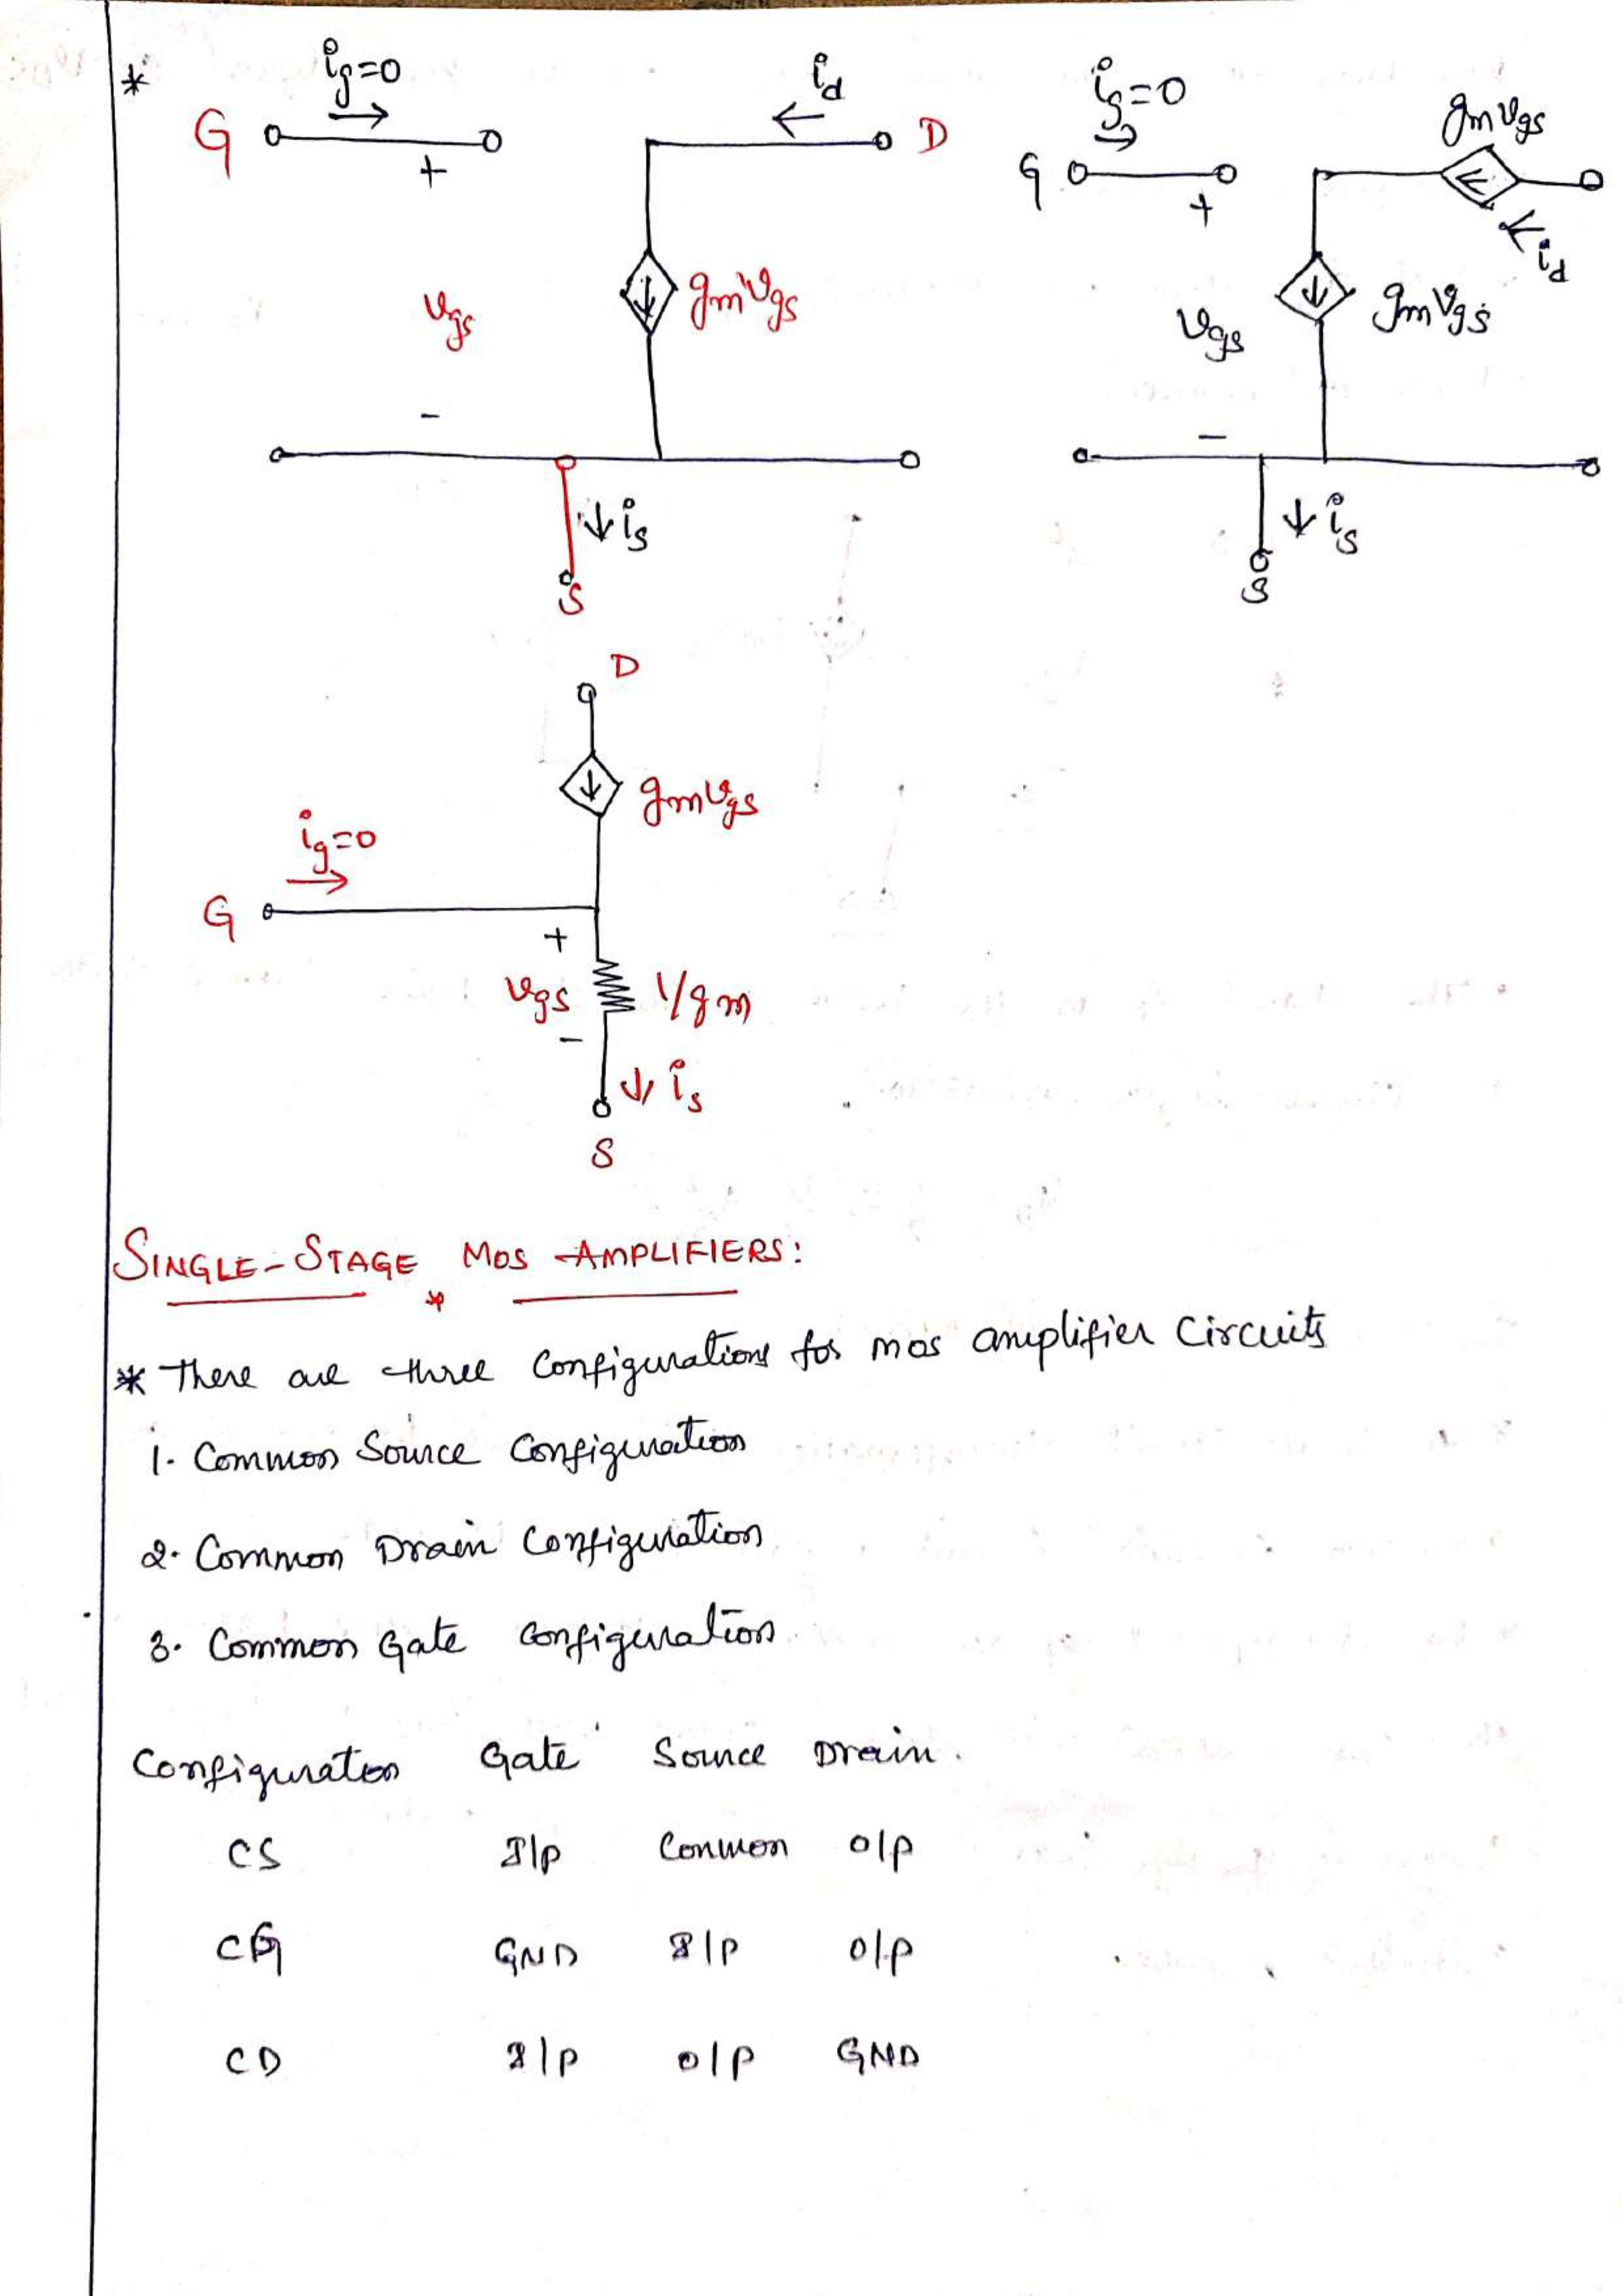 *
ig=0
id
G
D
+
vgs
gmvgs
-
↓ is
S
ig=0
gmvgs
G
+
id
vgs
gmvgs
-
↓ is
S
D
gmvgs
ig=0
G
+
vgs
1/gm
-
↓ is
S
SINGLE-STAGE MOS AMPLIFIERS:
* There are three Configurations for mos amplifier Circuits
1. Common Source Configuration
2. Common Drain Configuration
3. Common Gate Configuration
Configuration Gate Source Drain.
CS I/p Common O/p
CG GND I/P O/P
CD I/P O/P GND